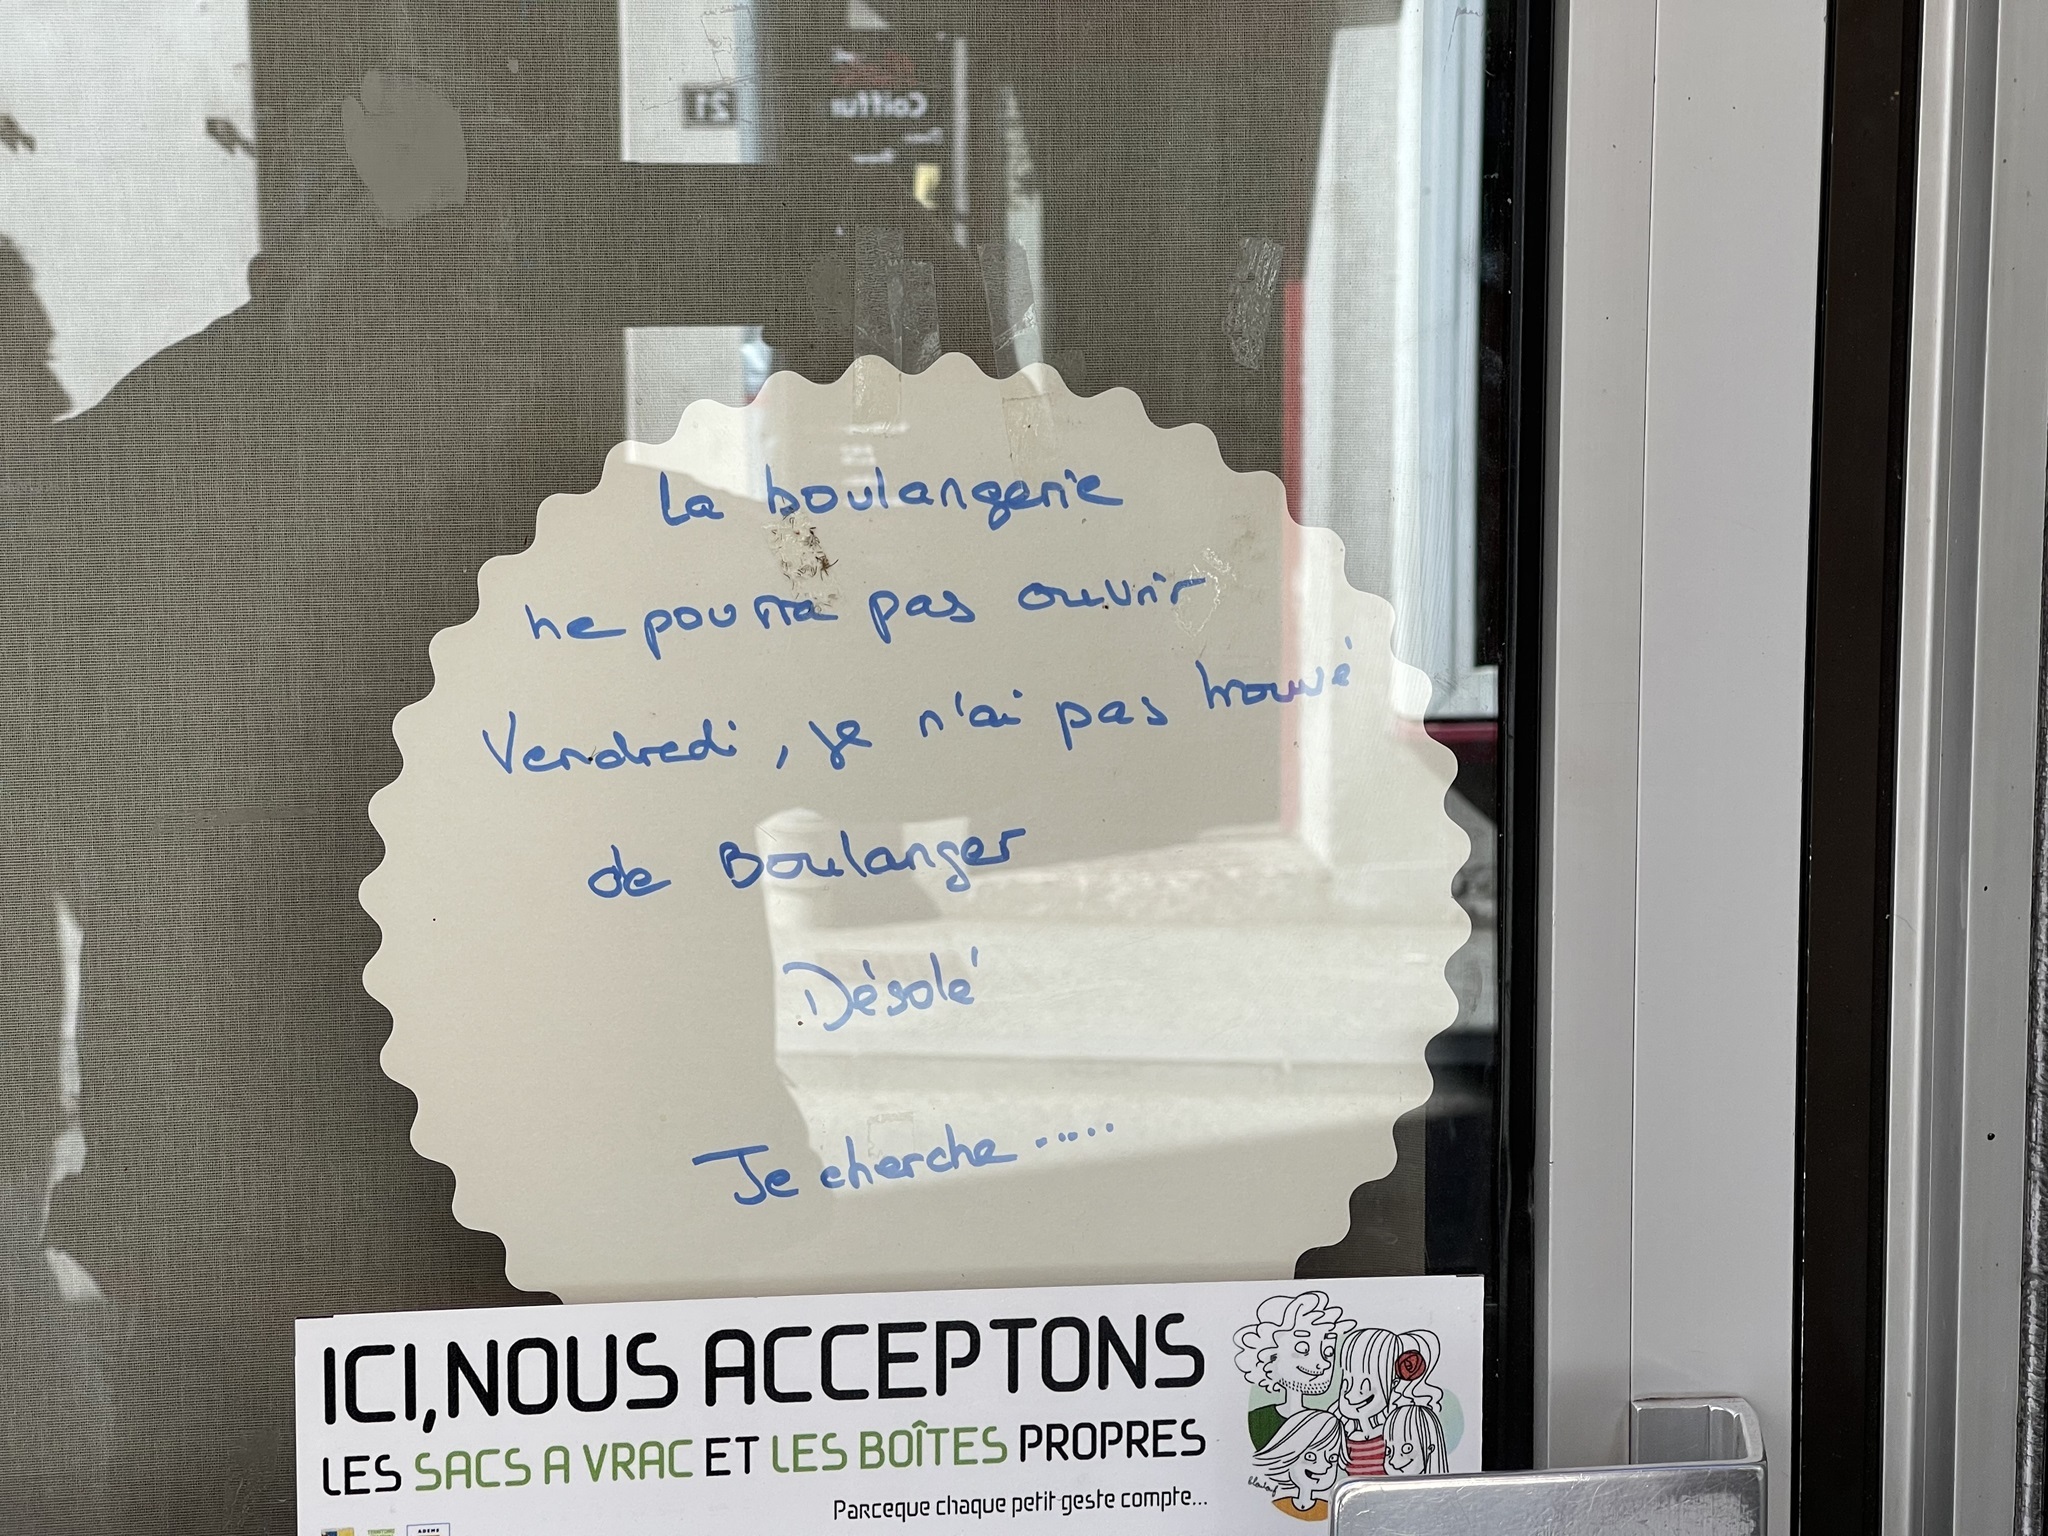 21
Coiffur
La boulangerie
ne pourra pas ouvrir
Vendredi, je n'ai pas trouvé
de Boulanger
Désolé
Je cherche .....
ICI, NOUS ACCEPTONS
LES SACS A VRAC ET LES BOÎTES PROPRES
Parceque chaque petit geste compte...
ADEME